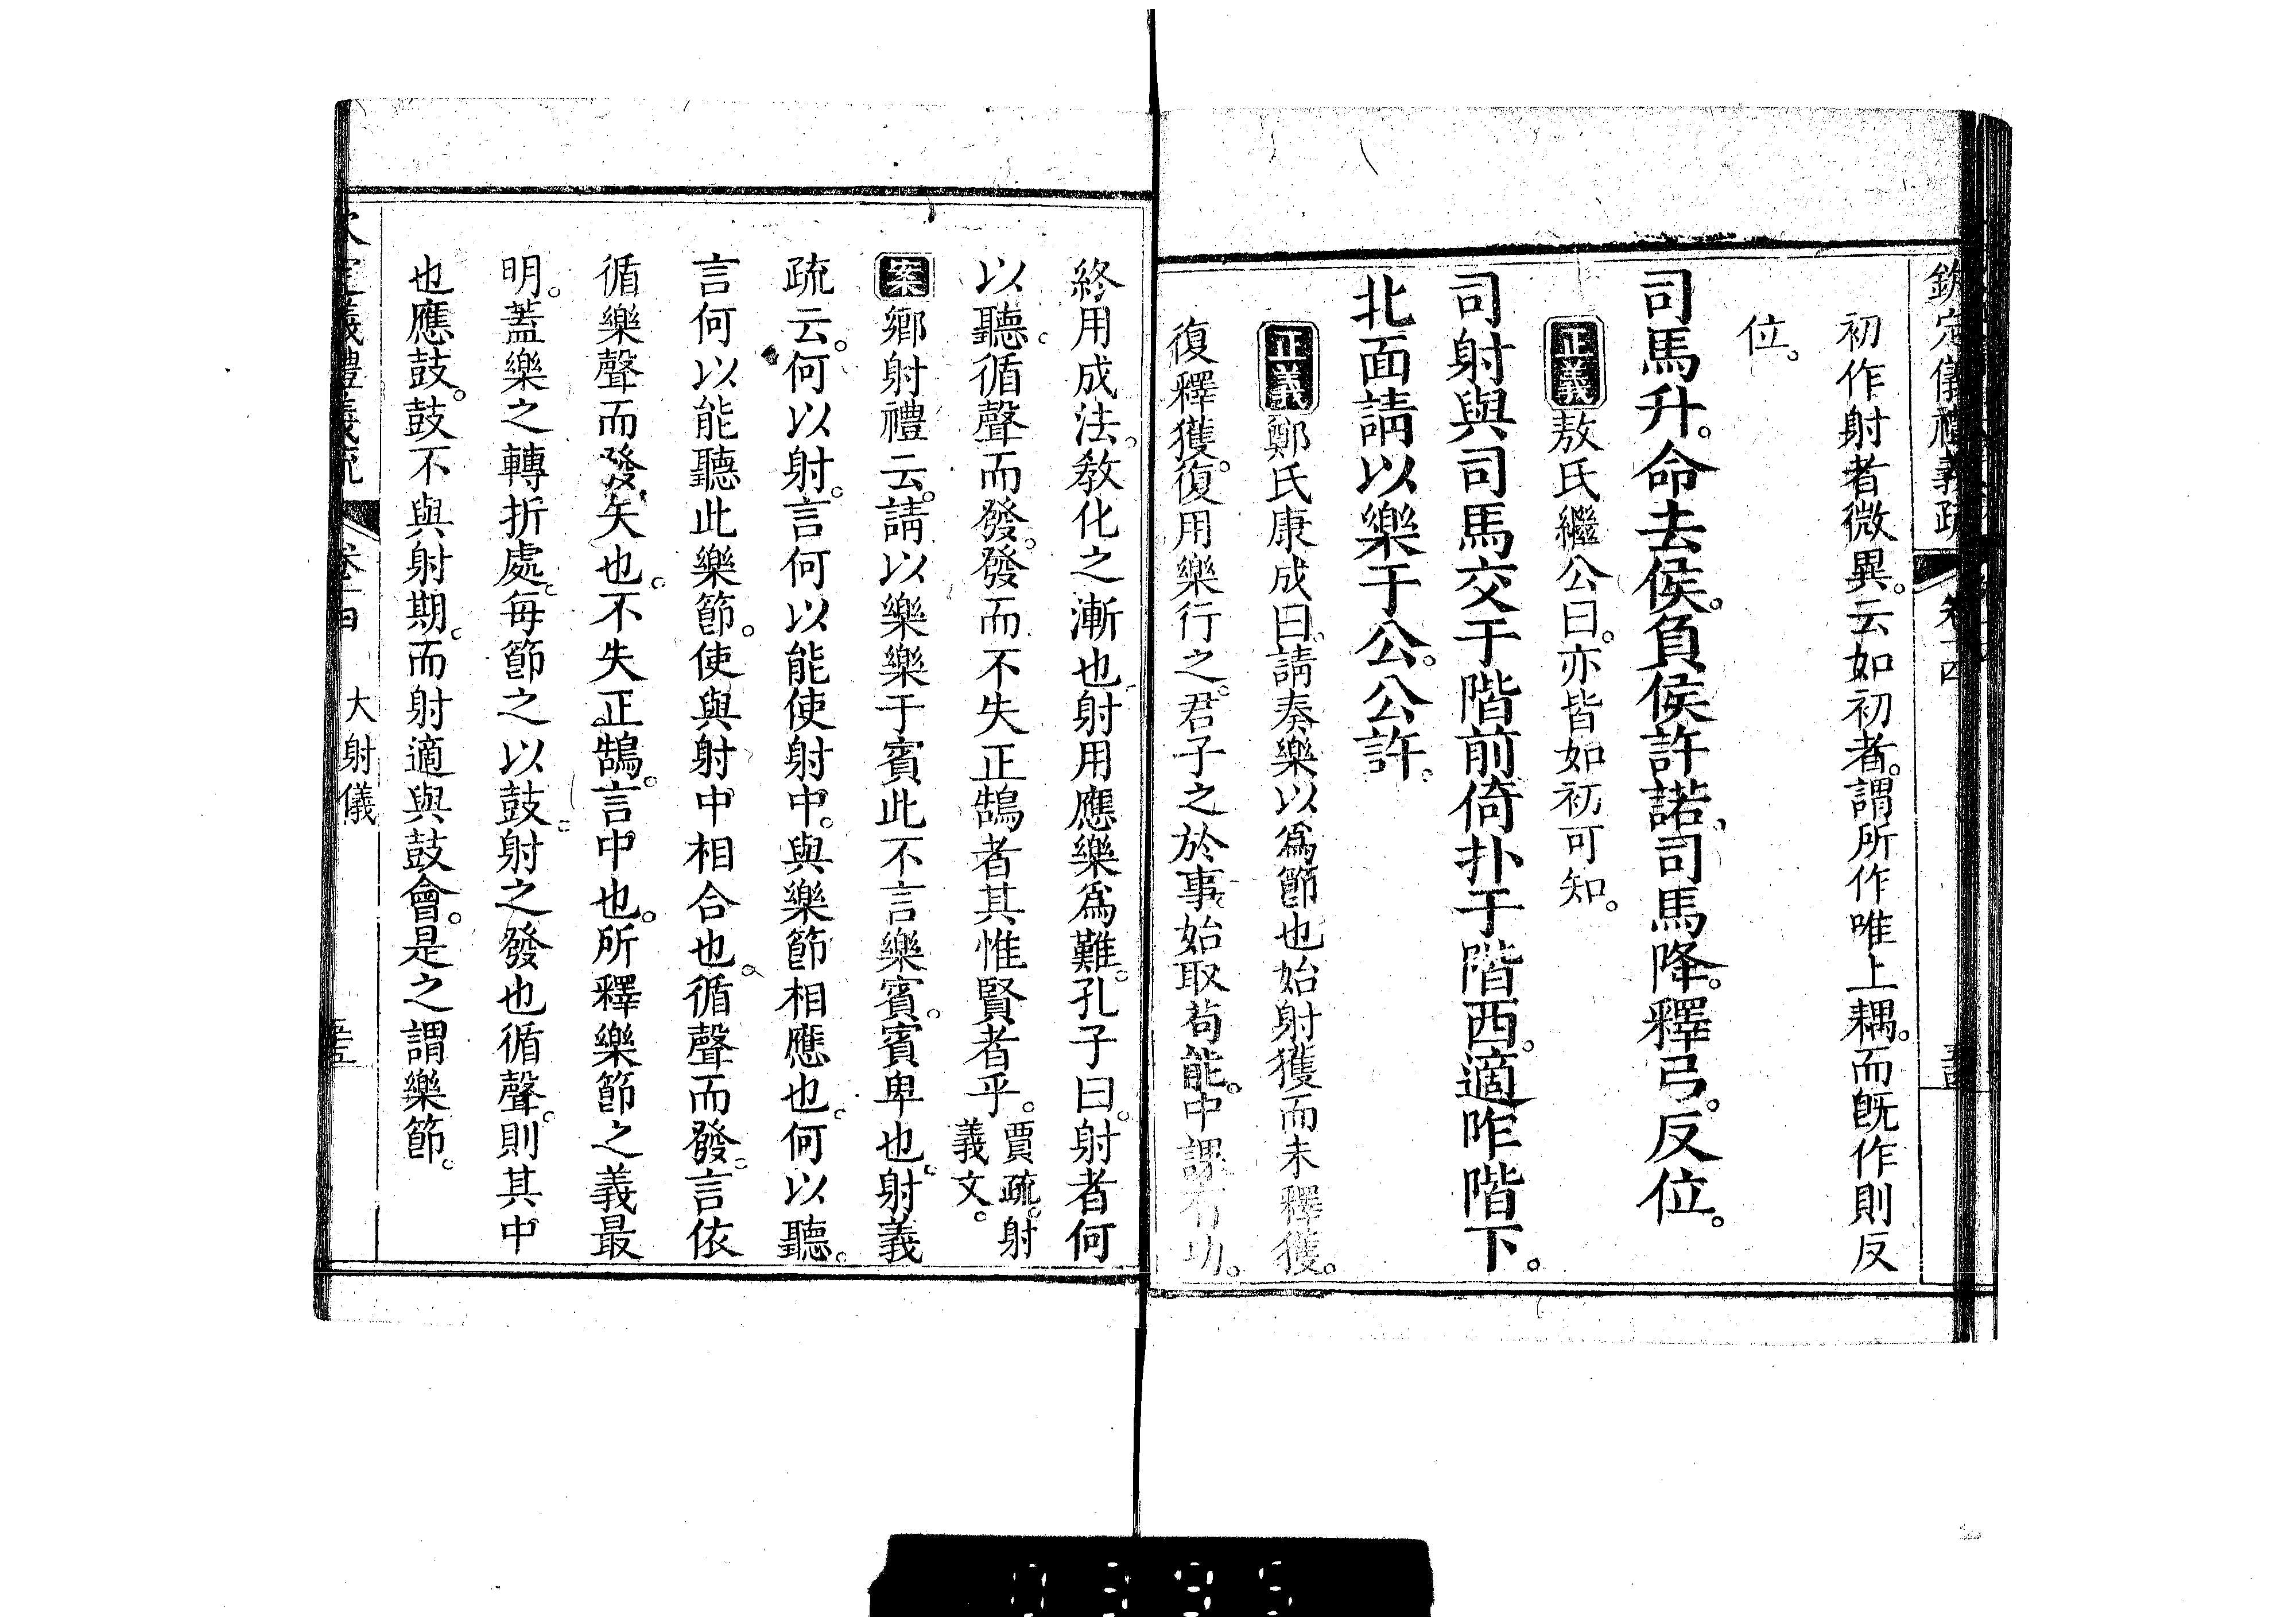 欽定儀禮義疏 卷十四
初作射者微異。云如初者。謂所作唯上耦。而旣作則反
位。
司馬升。命去侯。負侯許諾。司馬降。釋弓。反位。
正義敖氏繼公曰。亦皆如初可知。
司射與司馬交于階前倚扑于階西。適阼階下。
北面請以樂于公。公許。
正義鄭氏康成曰。請奏樂以爲節也始射獲而未釋獲。
復釋獲。復用樂行之。君子之於事始取苟能。中課有功。
終用成法。敎化之漸也。射用應樂爲難。孔子曰。射者何
以聽。循聲而發。發而不失正鵠者其惟賢者乎。賈疏。射
義文。
案鄉射禮云。請以樂樂于賓此不言樂賓。賓卑也。射義
疏云。何以射。言何以能使射中。與樂節相應也。何以聽。
言何以能聽此樂節。使與射中相合也。循聲而發。言依
循樂聲而發矢也。不失正鵠。言中也。所釋樂節之義最
明。蓋樂之轉折處。每節之以鼓。射之發也循聲。則其中
也應鼓。鼓不與射期。而射適與鼓會。是之謂樂節。
大射儀
0395